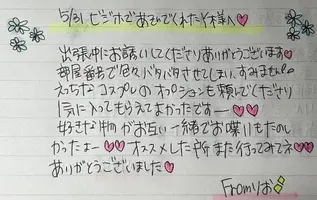 5/31 ビジホであそびでくれたY様へ♡
出張中にお誘いしてくださりありがとうございます♡
部屋番号で色々バタバタさせてしまい、すみません
えっちなコスプレのオプションも頼んでくださり
気に入ってもらえてよかったですー♡♡
好きな物がお互い一緒でお喋りもたのし
かったよー♡♡オススメした所また行ってみてネ♡♡
ありがとうございました♡
Fromりお